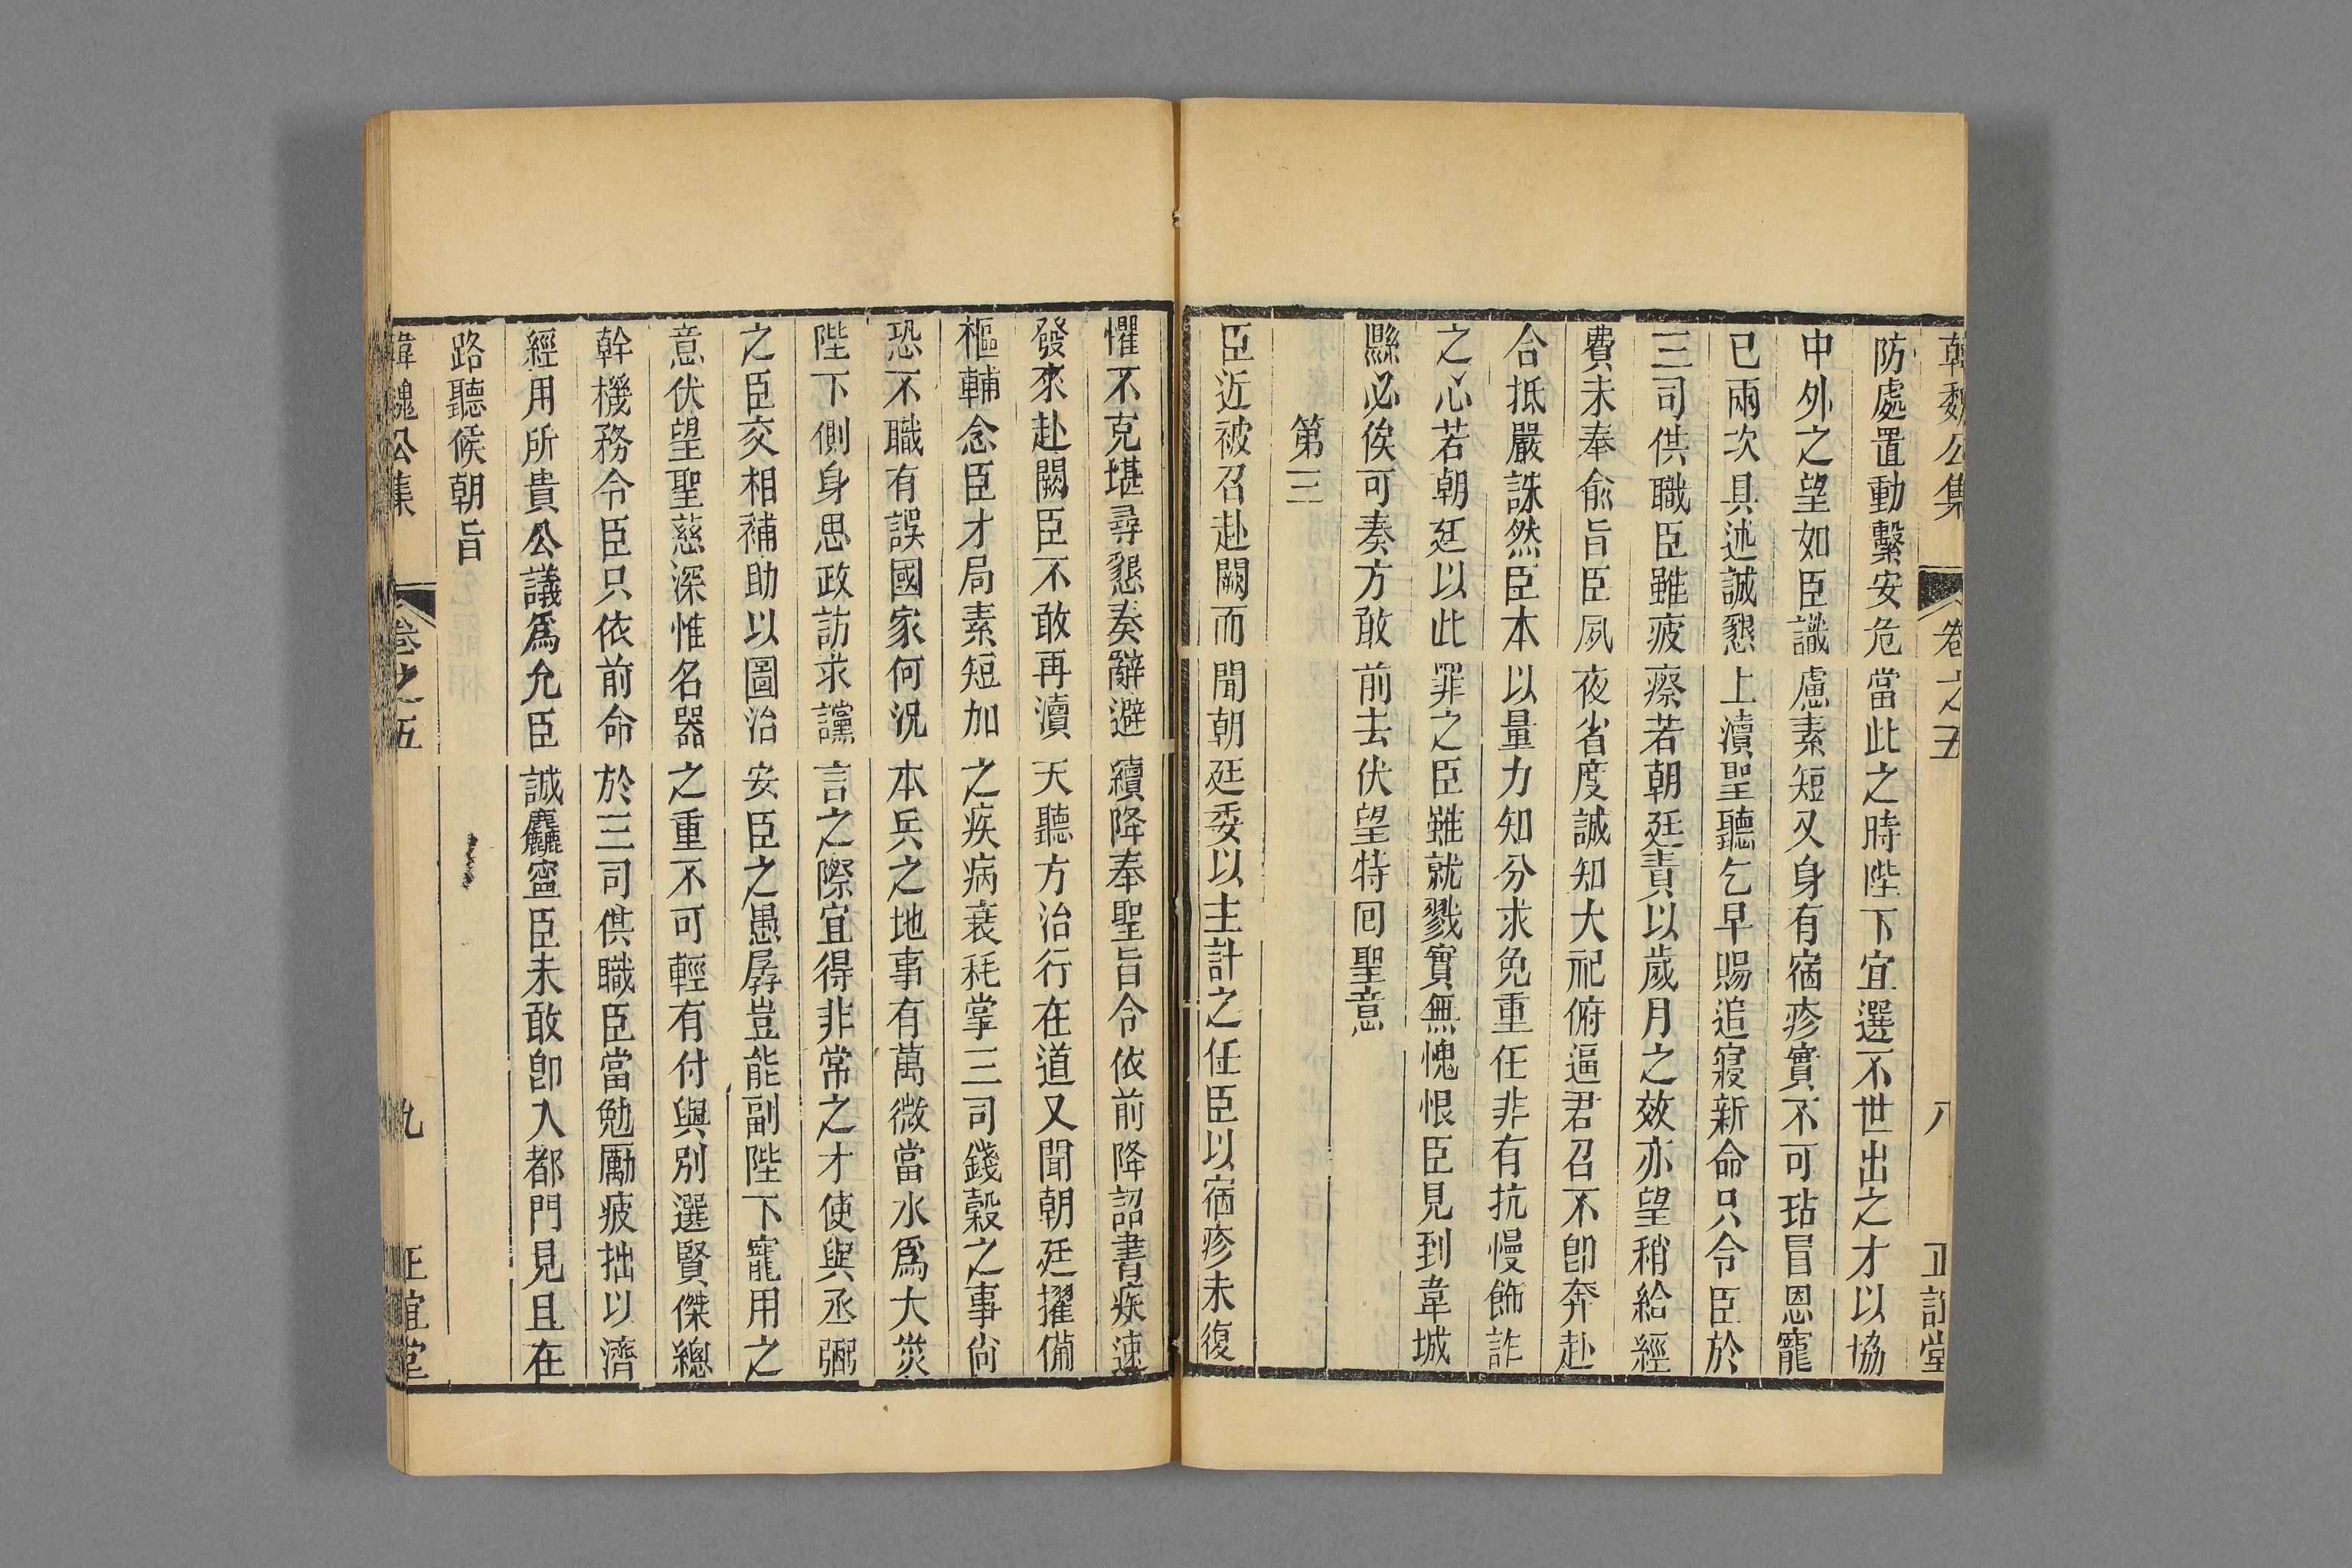 韓魏公集 卷之五 八 正誼堂
防處置動繫安危當此之時陛下宜選不世出之才以協
中外之望如臣識慮素短又身有宿疹實不可玷冒恩寵
已兩次具述誠懇上瀆聖聽乞早賜追寢新命只令臣於
三司供職臣雖疲瘵若朝廷責以歲月之效亦望稍給經
費未奉俞旨臣夙夜省度誠知大祀俯逼君召不卽奔赴
合抵嚴誅然臣本以量力知分求免重任非有抗慢飾詐
之心若朝廷以此罪之臣雖就戮實無愧恨臣見到韋城
縣必俟可奏方敢前去伏望特回聖意
第三
臣近被召赴闕而聞朝廷委以主計之任臣以宿疹未復
懼不克堪尋懇奏辭避續降奉聖旨令依前降詔書疾速
發來赴闕臣不敢再瀆天聽方治行在道又聞朝廷擢備
樞輔念臣才局素短加之疾病衰耗掌三司錢穀之事尙
恐不職有誤國家何況本兵之地事有萬微當水爲大災
陛下側身思政訪求讜言之際宜得非常之才使與丞弼
之臣交相補助以圖治安臣之愚孱豈能副陛下寵用之
意伏望聖慈深惟名器之重不可輕有付與別選賢傑總
幹機務令臣只依前命於三司供職臣當勉勵疲拙以濟
經用所貴公議爲允臣誠麤寍臣未敢卽入都門見且在
路聽候朝旨
韓魏公集 卷之五 九 正誼堂